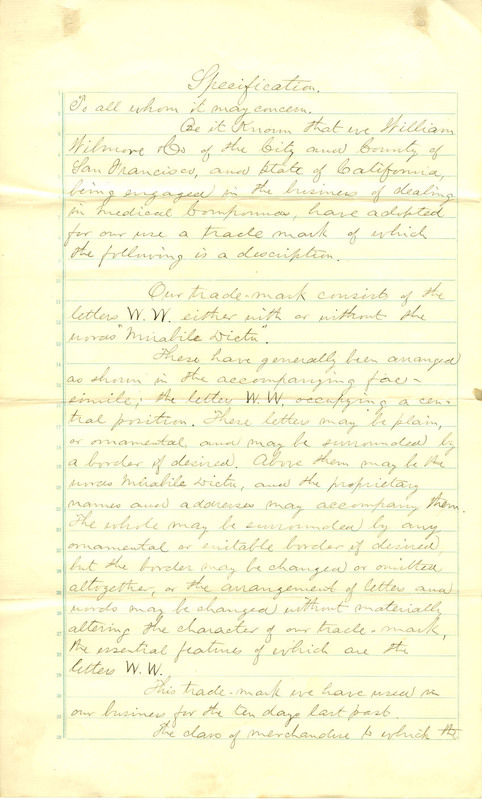 Specification.
To all whom it may concern.
Be it Known that we William
Wilmore & Co of the City and County of
San Francisco, and State of California,
being engaged in the business of dealing
in medical compounds, have adopted
for our use a trade mark of which
the following is a description.
Our trade-mark consists of the
letters W.W. either with or without the
words "Mirabile Dictu".
These have generally been arranged
as shown in the accompanying fac-
simile; the letters W.W. occupying a cen-
tral position. These letters may be plain,
or ornamental and may be surrounded by
a border if desired. Above them may be the
words Mirabile Dictu, and the proprietary
names and addresses may accompany them.
The whole may be surrounded by any
ornamental or suitable border if desired,
but the border may be changed or omitted
altogether, or the arrangement of letter and
words may be changed without materially
altering the character of our trade-mark,
the essential features of which are the
letters W.W.
This trade-mark we have used in
our business for the ten days last past.
The class of merchandise to which the